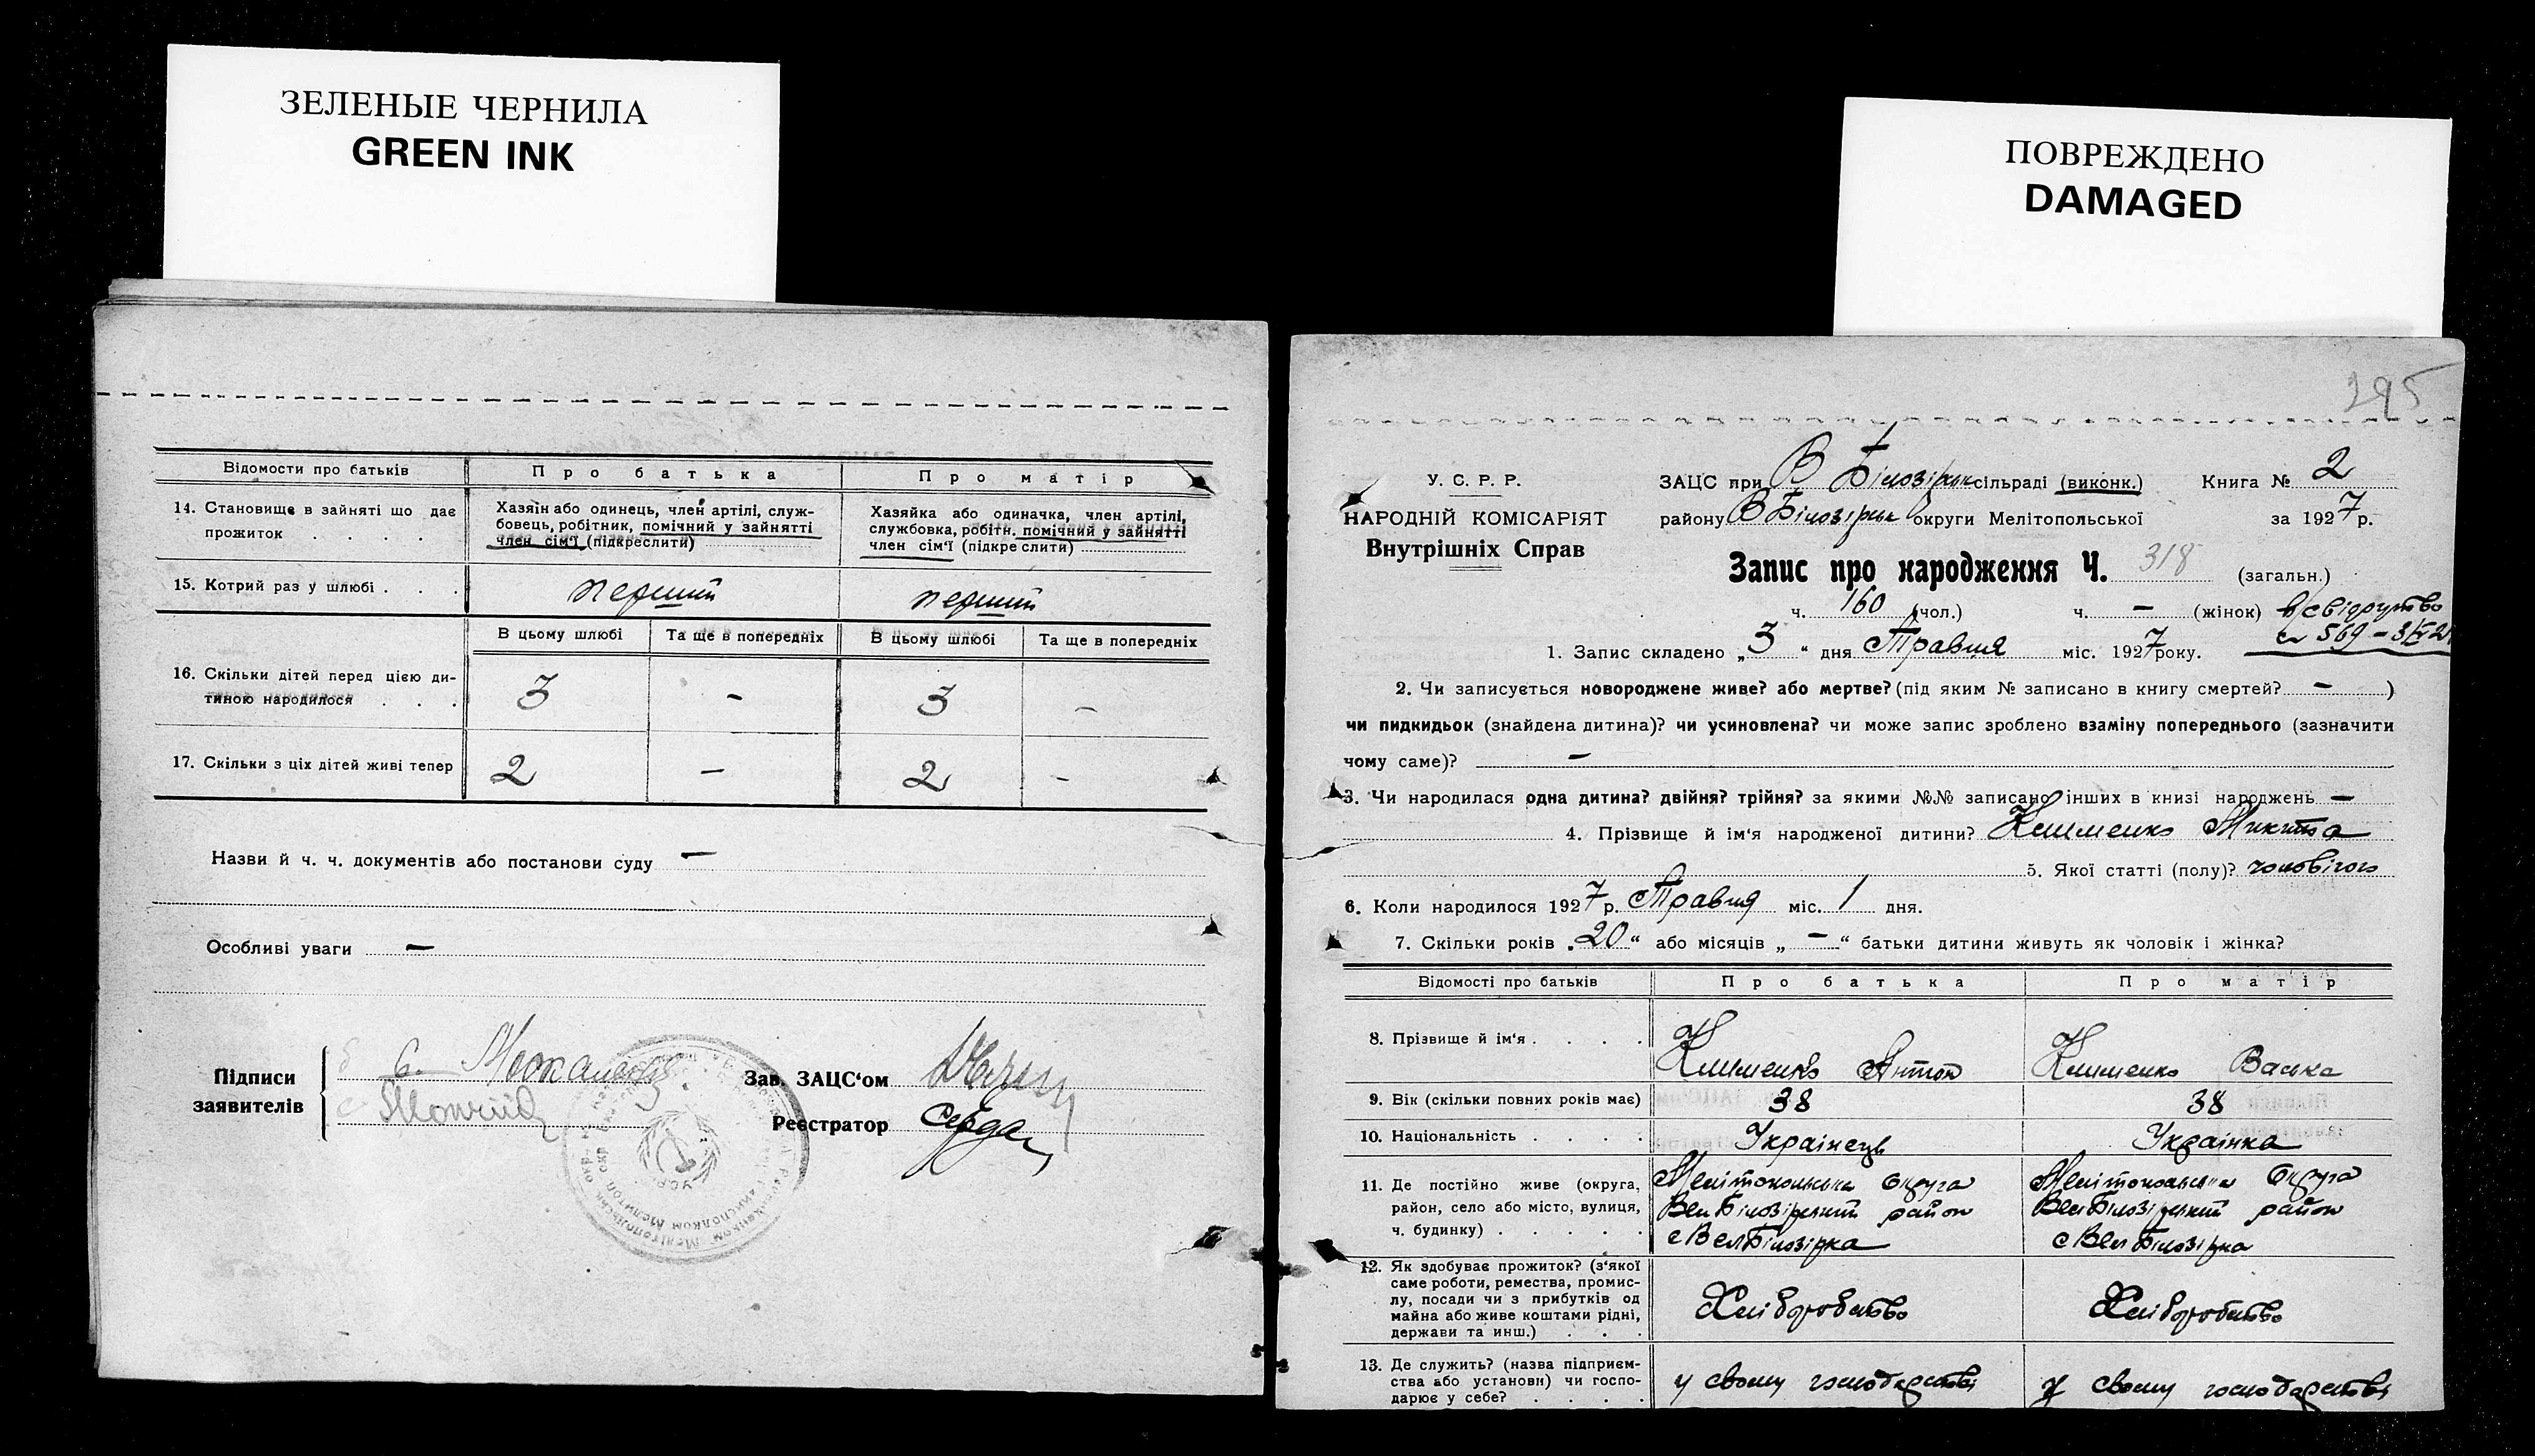 ЗЕЛЕНЫЕ ЧЕРНИЛА
GREEN INK
ПОВРЕЖДЕНО
DAMAGED
Відомости про батьків
Про батька
Про матір
14. Становище в зайняті що дає
прожиток . . . .
Хазяїн або одинець, член артілі, служ-
бовець, робітник, помічний у зайнятті
член сім'ї (підкреслити)
Хазяйка або одиначка, член артілі,
службовка, робітн. помічний у зайнятті
член сім'ї (підкреслити)
15. Котрий раз у шлюбі . . .
перший
перший
В цьому шлюбі
Та ще в попередніх
В цьому шлюбі
Та ще в попередніх
16. Скільки дітей перед цією ди-
тиною народилося . . .
3 - 3 -
17. Скільки з ціх дітей живі тепер
2 - 2 -
Назви й ч. ч. документів або постанови суду -
Особливі уваги -
Підписи
заявителів
Зав. ЗАЦС'ом
Реєстратор
295
У. С. Р. Р.
НАРОДНІЙ КОМІСАРІЯТ
Внутрішніх Справ
ЗАЦС при В Білозірськ сільраді (виконк.) Книга № 2
району В Білозірськ округи Мелітопольської за 1927 р.
Запис про народження Ч. 318 (загальн.)
ч. 160 (чол.) ч. - (жінок)
1. Запис складено „3“ дня Травня міс. 1927 року.
2. Чи записується новороджене живе? або мертве? (під яким № записано в книгу смертей? - )
чи пидкидьок (знайдена дитина)? чи усиновлена? чи може запис зроблено взаміну попереднього (зазначити
чому саме)? -
3. Чи народилася одна дитина? двійня? трійня? за якими №№ записано інших в книзі народжень -
4. Прізвище й ім'я народженої дитини? Клименко Микита
5. Якої статті (полу)? чоловічого
6. Коли народилося 1927 р. Травня міс. 1 дня.
7. Скільки років „20“ або місяців „-“ батьки дитини живуть як чоловік і жінка?
Відомості про батьків
Про батька
Про матір
8. Прізвище й ім'я . . . .
Клименко Антон
Клименко Васька
9. Вік (скільки повних років має)
38
38
10. Національність . . . .
Українець
Українка
11. Де постійно живе (округа,
район, село або місто, вулиця,
ч. будинку) . . . . .
Мелітопольська Округа
Вел Білозірський район
с Вел Білозірка
Мелітопольська Округа
Вел Білозірський район
с Вел Білозірка
12. Як здобуває прожиток? (з'якої
саме роботи, ремества, промис-
лу, посади чи з прибутків од
майна або живе коштами рідні,
держави та инш.) . . .
Хліборобство
Хліборобство
13. Де служить? (назва підприєм-
ства або установи) чи госпо-
дарює у себе? . . . .
у свому господарстві
у свому господарстві